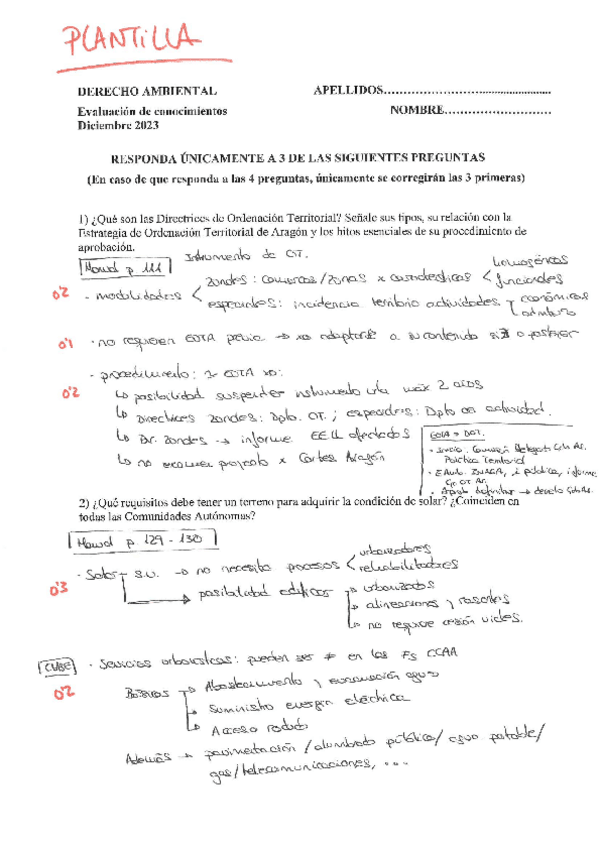 PLANTILLA
DERECHO AMBIENTAL APELLIDOS
Evaluación de conocimientos NOMBRE
Diciembre 2023
RESPONDA ÚNICAMENTE A 3 DE LAS SIGUIENTES PREGUNTAS
(En caso de que responda a las 4 preguntas, únicamente se corregirán las 3 primeras)
1) ¿Qué son las Directrices de Ordenación Territorial? Señale sus tipos, su relación con la
Estrategia de Ordenación Territorial de Aragón y los hitos esenciales de su procedimiento de
aprobación.
Instrumento de OT.
Manual p 111
0'2 - modalidades
zonales: comarcas/zonas x características
homogéneas
funcionales
especiales: incidencia territorio actividades
económicas
admtivas
0'1 · no requieren EOTA previa → xo adaptarse a su contenido si ∃ a posterior
0'2 - procedimiento: = EOTA xo:
↳ posibilidad suspender instrumento urb. máx 2 años
↳ Directrices zonales: Dpto. OT.; especiales: Dpto xa actividad.
↳ Dir. zonales → informe EE.LL afectados
↳ no examinar proyecto x Cortes Aragón
EOTA = DOT.
· Inicio: Comisión Delegada Gob. Ar.
Política Territorial
· E.Amb. INAGA, i pública, informe
· Aprob. definitiva → decreto Gob. Ar.
2) ¿Qué requisitos debe tener un terreno para adquirir la condición de solar? ¿Coinciden en
todas las Comunidades Autónomas?
Manual p 129 - 130
0'3 · Solar
S.U. → no necesita procesos
urbanizadores
rehabilitadores
posibilidad edificar
urbanizados
alineaciones y rasantes
no requiere cesión viales.
CUBE · Servicios urbanísticos: pueden ser ≠ en las ≠s CCAA
0'2 Básicos
Abastecimiento y evacuación agua
Suministro energía eléctrica
Acceso rodado
Además → pavimentación / alumbrado público / agua potable /
gas / telecomunicaciones, ...